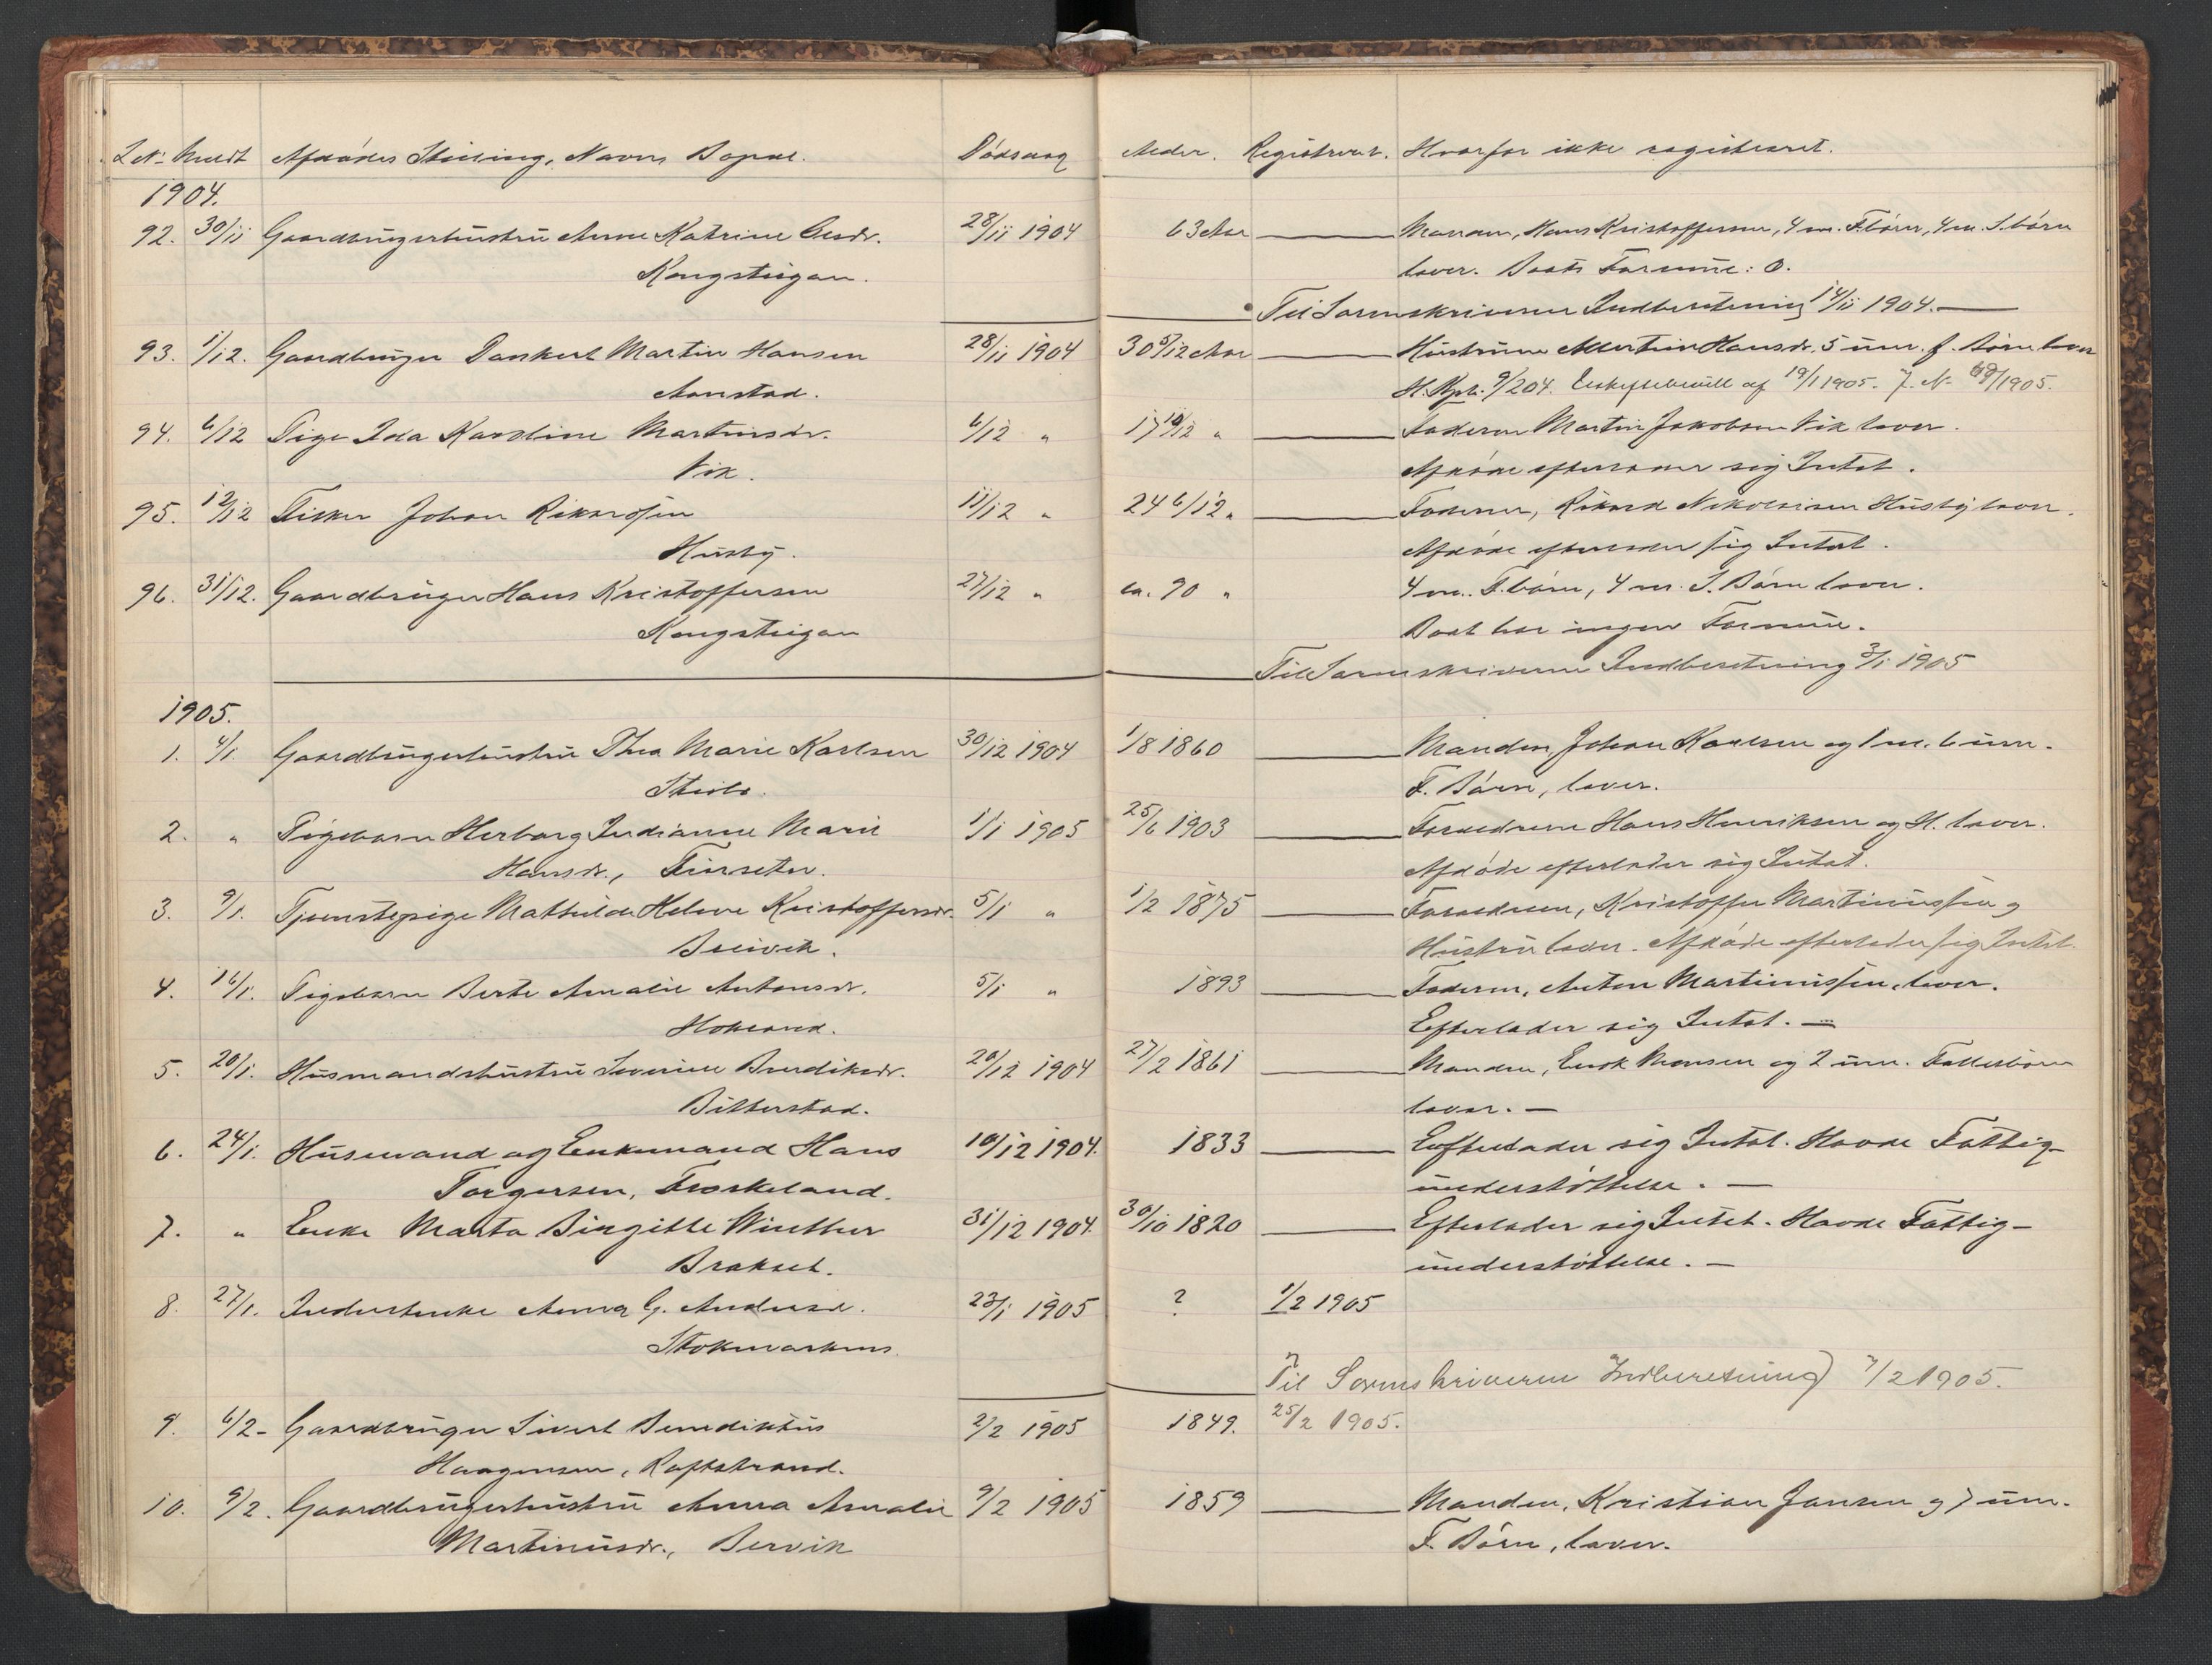 L.N. Meldt Afdødes Stilling, Navn, Bopæl. Dødsdag Alder. Registreret. Hvorfor ikke registreret.
1904.
92. 30/11 Gaardbrugerhustru Anne Katrine Olsdr. 28/11 1904 63 Aar Manden, Hans Kristoffersen, 4 m. F.børn, 4 m. S.børn
Kongstuigan. lever. Boets Formue: 0.
Til Sorenskriveren Indberetning 14/11 1904.
93. 1/12. Gaardbruger Dankert Martin Hansen 28/11 1904 30 5/12 Aar Hustruen Hansdr. 5 um. f. Børn lever
Aanstad. 9/204. af 19/1 1905. J. N. /1905.
94. 6/12 Pige Ida Karoline Martinsdr. 6/12 " 17 10/12 " Faderen Martin Jakobsen Vik lever.
Vik. Afdøde efterlader sig Intet.
95. 12/12 Fisker Johan Rikardsen 11/12 " 24 6/12 " Faderen, Rikard Nikolaisen Husby lever.
Husby. Afdøde efterlader sig Intet.
96. 31/12. Gaardbruger Hans Kristoffersen 27/12 " ca. 70 " 4 m. F.børn, 4 m. S. Børn lever.
Kongstuigan Boet har ingen Formue.
Til Sorenskriveren Indberetning 3/1 1905
1905.
1. 4/1. Gaardbrugerhustru Thea Marie Karlsen 30/12 1904 1/8 1860 Manden, Johan Karlsen og 1 m. 6 um.
F. Børn, lever.
2. " Pigebarn Herborg Indianne Marie 1/1 1905 25/6 1903 Forældrene Hans Henriksen og H. lever.
Hansdr., Furseter. Afdøde efterlader sig Intet.
3. 9/1. Tjenestepige Mathilde Helene Kristoffersdr. 5/1 " 1/2 1875 Forældrene, Kristoffer Martinussen og
Breivik. Hustru lever. Afdøde efterlader sig Intet.
4. 16/1. Pigebarn Berte Amalie Antonsdr. 5/1 " 1893 Faderen, Anton Martinussen, lever.
Hokland. Efterlader sig Intet. —
5. 20/1. Husmandshustru Severine Bendiksdr. 20/12 1904 27/2 1861 Manden, Enok Monsen og 2 um. Fællesbørn
Bitterstad. lever. —
6. 24/1. Husmand og Enkemand Hans 10/12 1904. 1833 Efterlader sig Intet. Havde Fattig-
Torgersen, Froskeland. understøttelse. —
7. " Enke Marta Birgitte Winther 31/12 1904. 30/10 1820 Efterlader sig Intet. Havde Fattig-
Brakset. understøttelse. —
8. 27/1. Inderstenke Anna G. Andersd. 23/1 1905 ? 1/2 1905
Stokmarknes.
Til Sorenskriveren Indberetning 7/2 1905.
9. 6/2- Gaardbruger Sivert Benediktus 2/2 1905 1849. 25/2 1905.
Haagensen, Raftstrand.
10. 9/2. Gaardbrugerhustru Anna Amalie 9/2 1905 1859 Manden, Kristian Jansen og 7 um.
Martinusdr., Bervik F. Børn, lever.